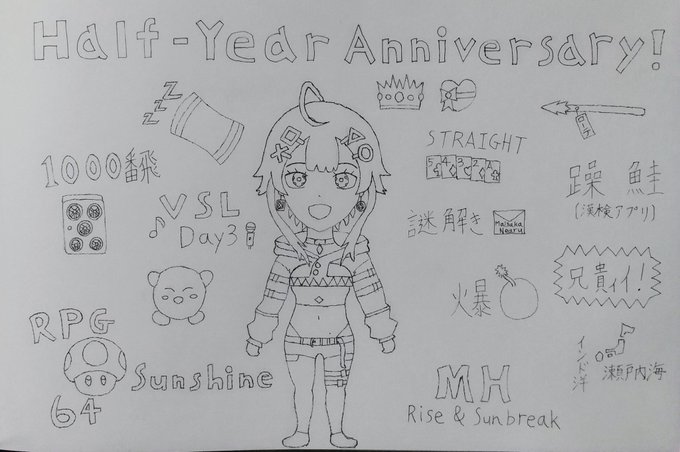 Half-Year Anniversary!
ZZZ
1000番飛
VSL
Day3
STRAIGHT
5 4 3 2 A
謎解き
躁 鮭
(漢検アプリ)
火暴
兄貴ィィ!
RPG
64
Sunshine
MH
Rise & Sunbreak
インド洋
瀬戸内海